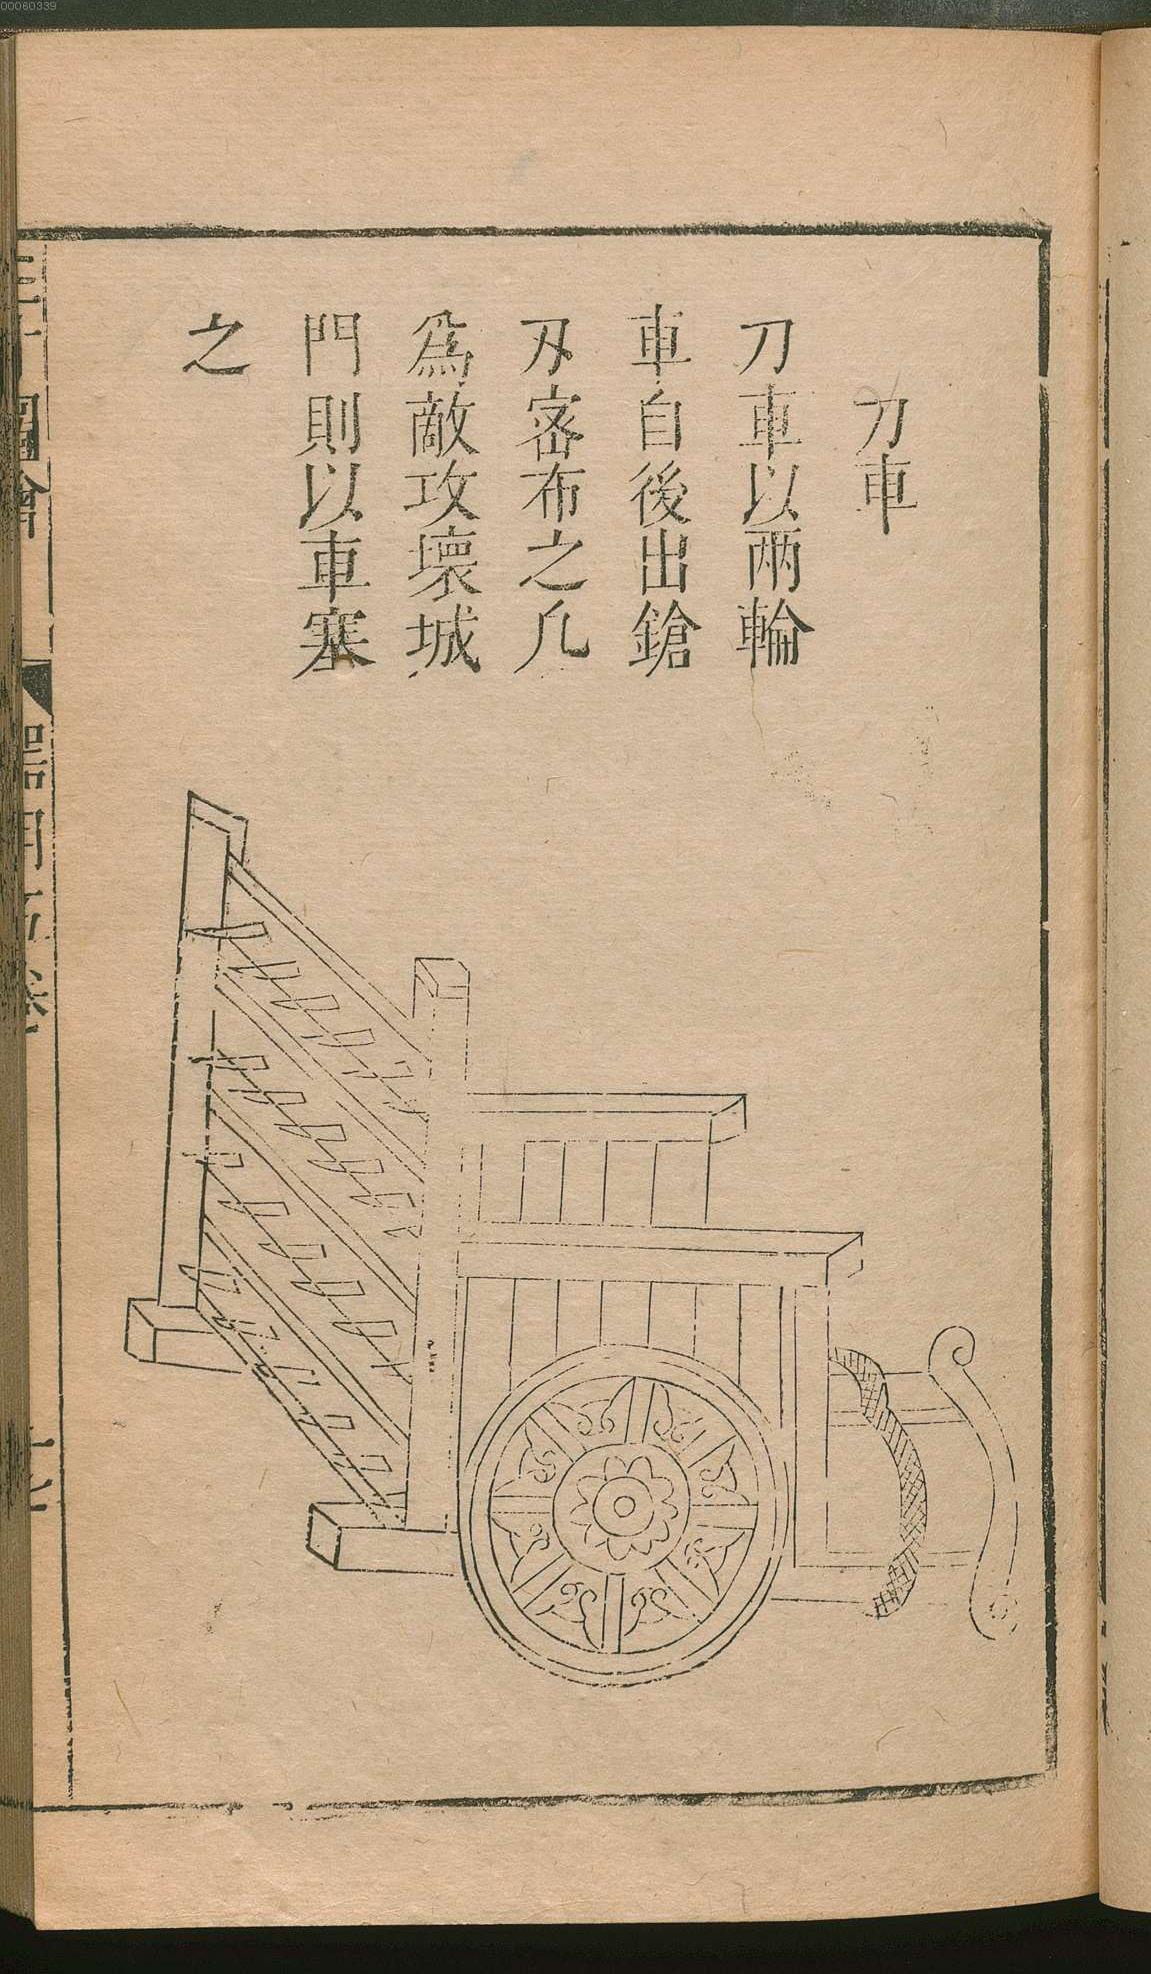 00060339
刀車
刀車以兩輪
車自後出鎗
刄密布之凡
爲敵攻壞城
門則以車塞
之
三才圖會
器用五卷
十六